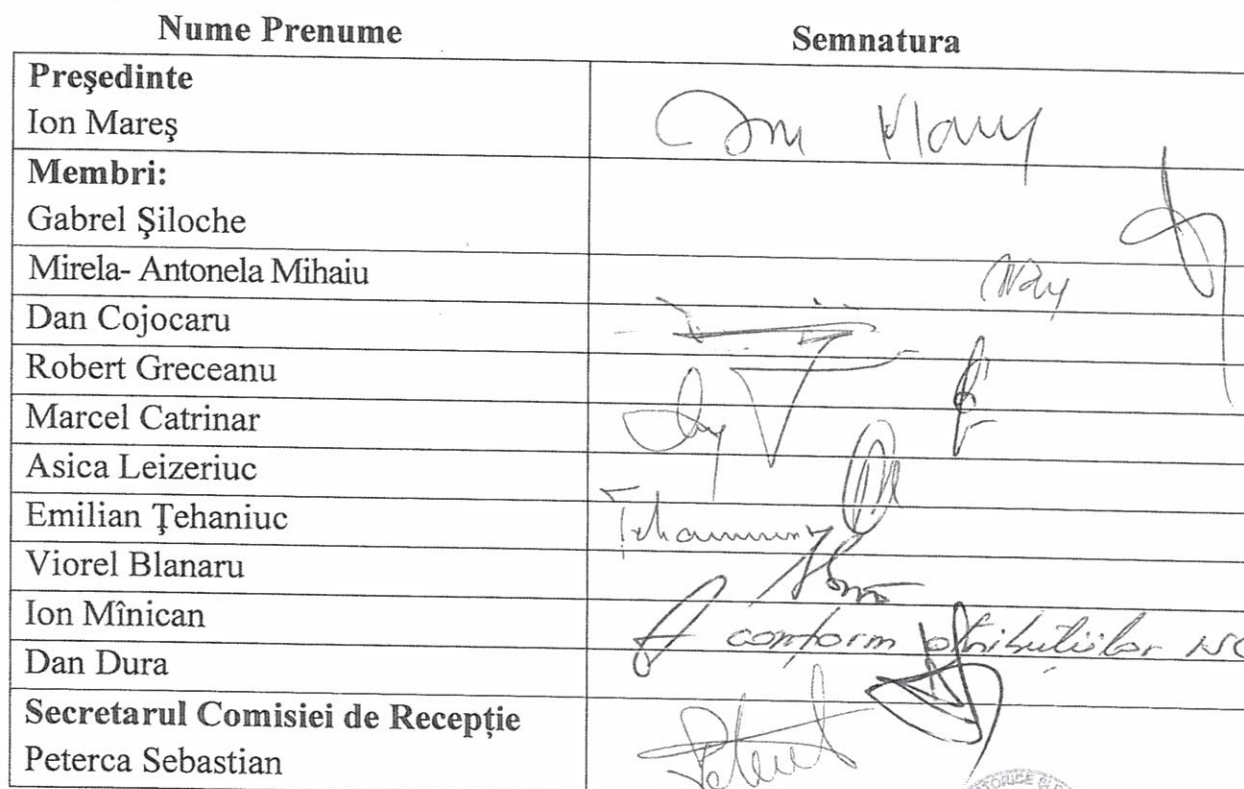 Nume Prenume Semnatura
Preşedinte
Ion Mareş
Membri:
Gabrel Şiloche
Mirela- Antonela Mihaiu
Dan Cojocaru
Robert Greceanu
Marcel Catrinar
Asica Leizeriuc
Emilian Ţehaniuc
Viorel Blanaru
Ion Mînican
conform atribuțiilor
Dan Dura
Secretarul Comisiei de Recepție
Peterca Sebastian